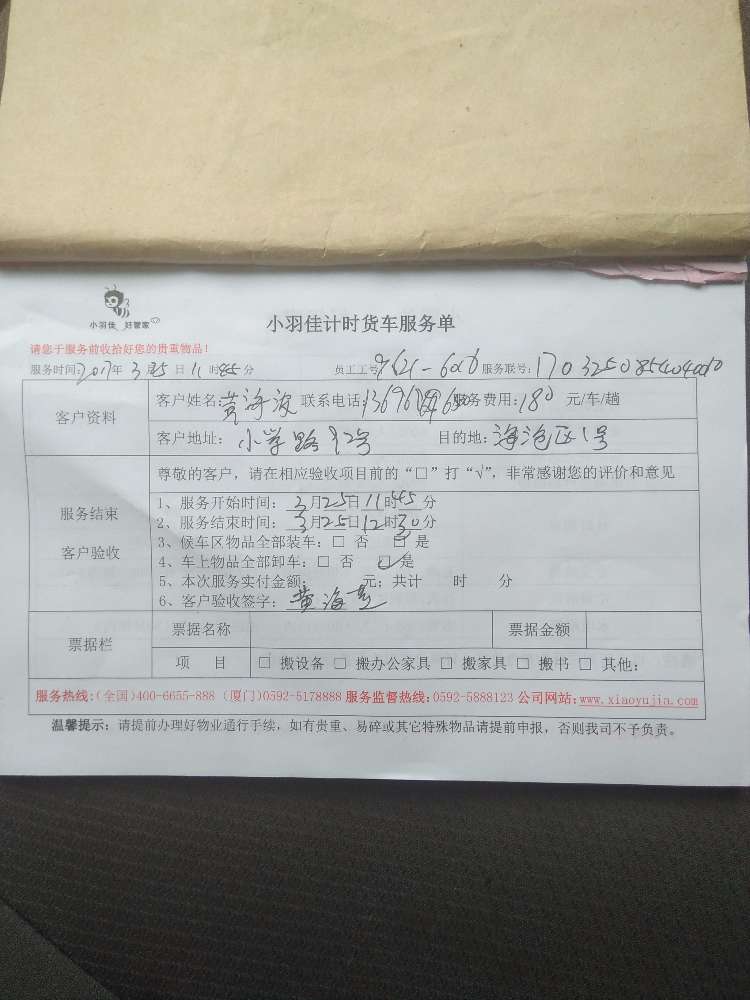 小羽佳 好管家
小羽佳计时货车服务单
请您于服务前收拾好您的贵重物品!
服务时间: 2017年 3月25日 11时45分 员工工号: 服务联号:
客户资料
客户姓名: 黄海波 联系电话: 服务费用: 180 元/车/趟
客户地址: 小学路 号 目的地: 海沧区1号
服务结束
客户验收
尊敬的客户,请在相应验收项目前的“□”打“√”,非常感谢您的评价和意见
1、服务开始时间: 3月25日11时45分
2、服务结束时间: 3月25日12时30分
3、候车区物品全部装车:□ 否 □ 是
4、车上物品全部卸车:□ 否 □ 是
5、本次服务实付金额: 元;共计 时 分
6、客户验收签字: 黄海
票据栏
票据名称 票据金额
项 目 □ 搬设备 □ 搬办公家具 □ 搬家具 □ 搬书 □ 其他:
服务热线:(全国)400-6655-888 (厦门)0592-5178888 服务监督热线:0592-5888123 公司网站:www.xiaoyujia.com
温馨提示:请提前办理好物业通行手续,如有贵重、易碎或其它特殊物品请提前申报,否则我司不予负责。